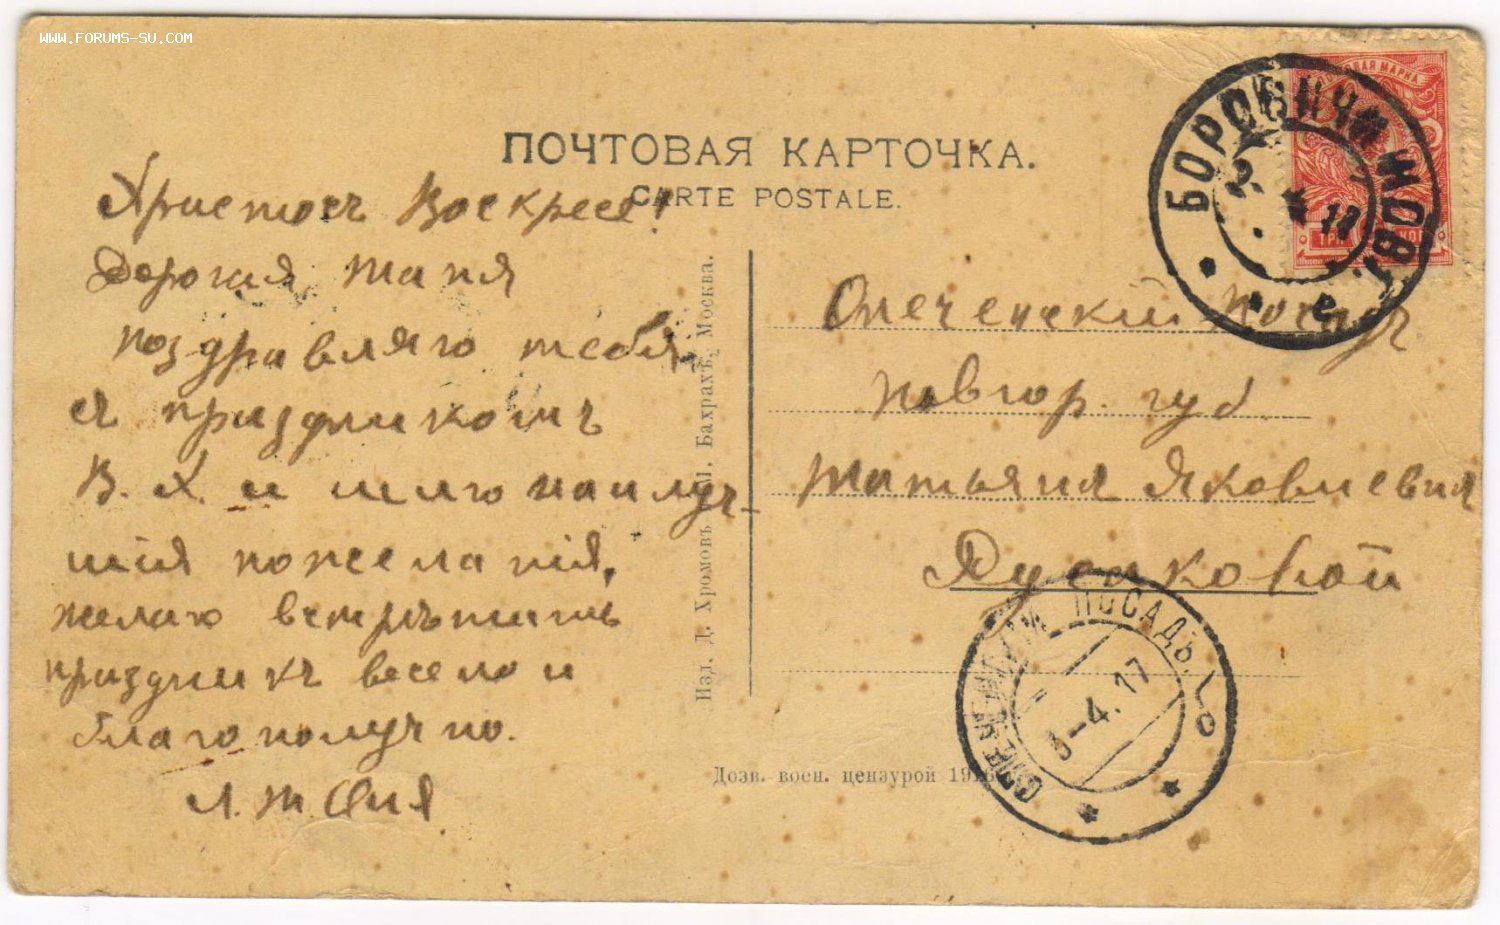 WWW.FORUMS-SU.COM
ПОЧТОВАЯ КАРТОЧКА.
CARTE POSTALE.
Христосъ Воскресе!
Дорогая Таня
поздравляю тебя
съ праздникомъ
В. Х. и шлю наилуч-
шія пожеланія,
желаю встрѣтить
праздникъ весело и
благополучно.
Л. Т.
Изд. Д. Хромовъ М. Бахрахъ, Москва.
Опеченскій Посадъ
Новгор. губ.
Татьяна Яковлевна
Дозв. воен. цензурой 191
БОРОВИЧИ НОВГ.
2. 4 17
ПОЧТОВАЯ МАРКА
ТРИ КОП
ОПЕЧЕНСКІЙ ПОСАДЪ
3-4.17